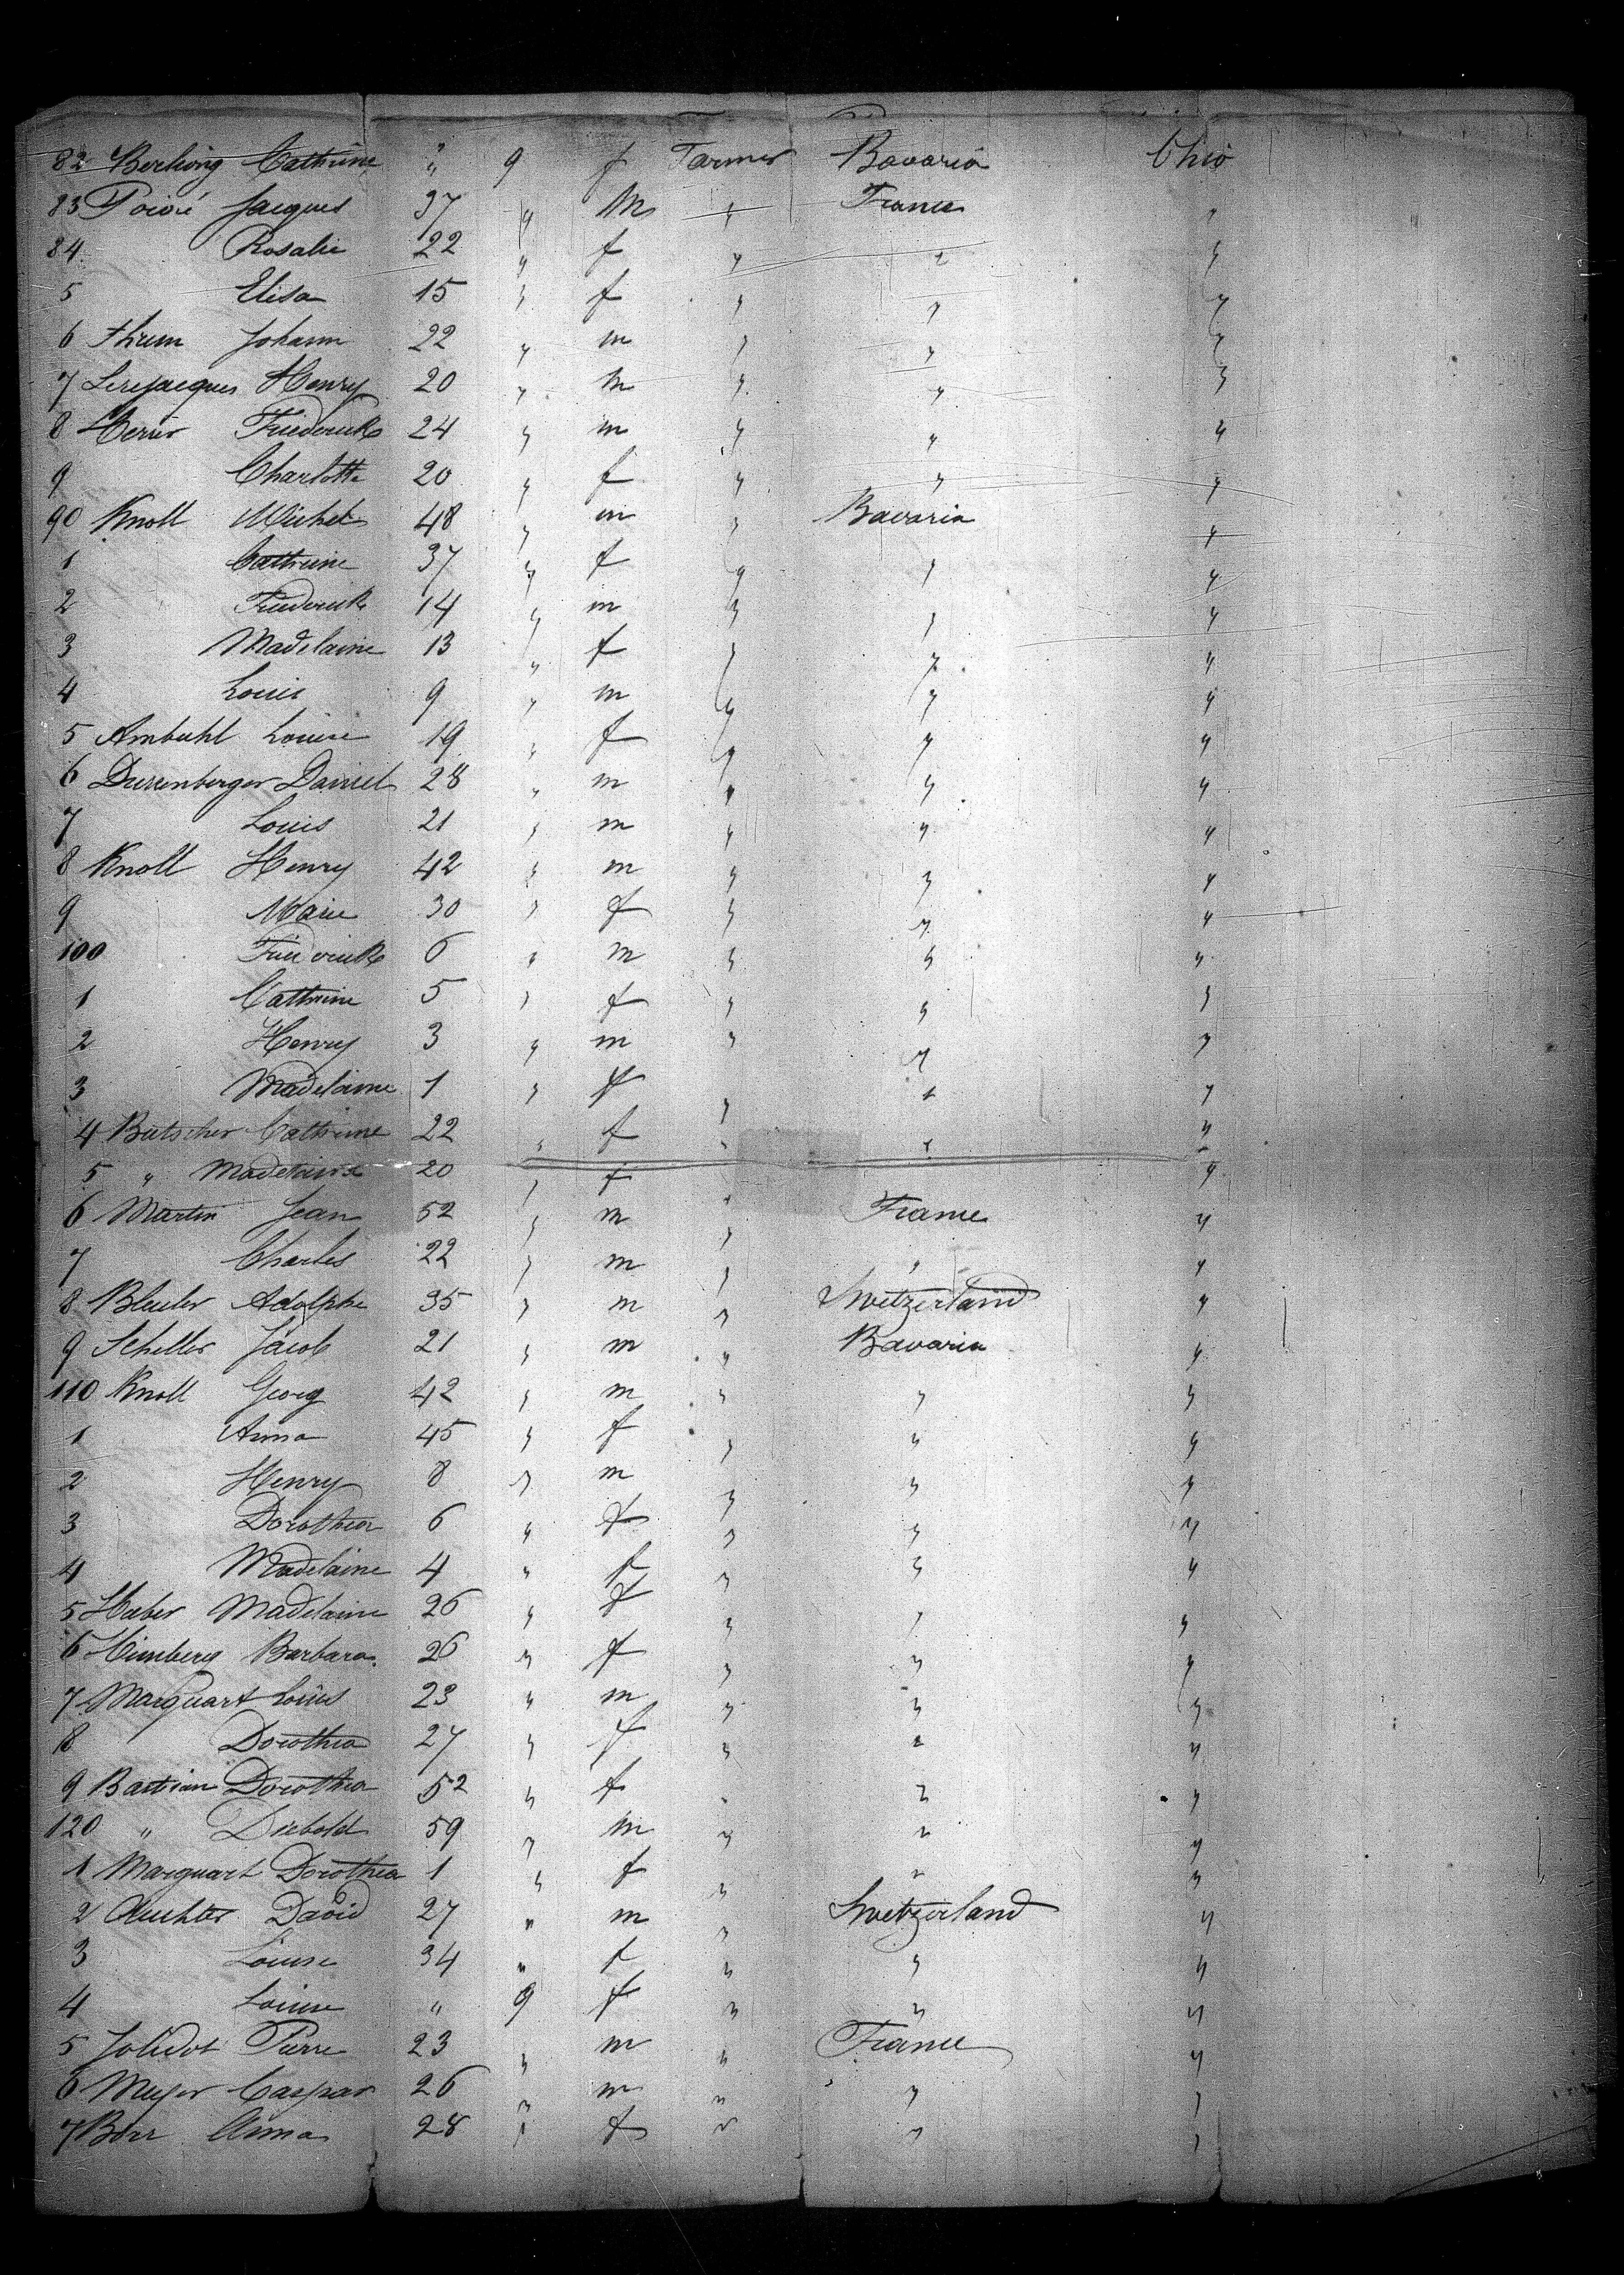 82 Berhving Cathrine " 9 f Farmer Bavaria Ohio
83 Poivré Jacques 37 " M " France "
84 Rosalie 22 " f " " "
5 Elisa 15 " f " " "
6 Thrum Johann 22 " m " " "
7 Lirejacques Henry 20 " m " " "
8 Friederick 24 " m " " "
9 Charlotte 20 " f " " "
90 Knoll Michel 48 " m " Bavaria "
1 Cathrine 37 " f " " "
2 Friederick 14 " m " " "
3 Madelaine 13 " f " " "
4 Louis 9 " m " " "
5 Ambuhl Louise 19 " f " " "
6 Durrenberger Daniel 28 " m " " "
7 Louis 21 " m " " "
8 Knoll Henry 42 " m " " "
9 Marie 30 " f " " "
100 Friederick 6 " m " " "
1 Cathrine 5 " f " " "
2 Henry 3 " m " " "
3 Madelaine 1 " f " " "
4 Butscher Cathrine 22 " f " " "
5 " Madelaine 20 " f "
6 Martin Jean 52 " m " France "
7 Charles 22 " m " " "
8 Bleuler Adolphe 35 " m " Switzerland "
9 Scheller Jacob 21 " m " Bavaria "
110 Knoll Georg 42 " m " " "
1 Anna 45 " f " " "
2 Henry 8 " m " " "
3 Dorothea 6 " f " " "
4 Madelaine 4 " f " " "
5 Huber Madelaine 26 " f " " "
6 Himberg Barbara 26 " f " " "
7 Marquart Louis 23 " m " " "
8 Dorothea 27 " f " " "
9 Bastian Dorothea 52 " f " " "
120 " Diebold 59 " M " " "
1 Marquart Dorothea 1 " f " " "
2 David 27 " m " Switzerland "
3 Louise 34 " f " " "
4 Louise " 9 f " " "
5 Jolidot Pierre 23 " m " France "
6 Meyer Caspar 26 " m " " "
7 Borr Anna 28 " f " " "